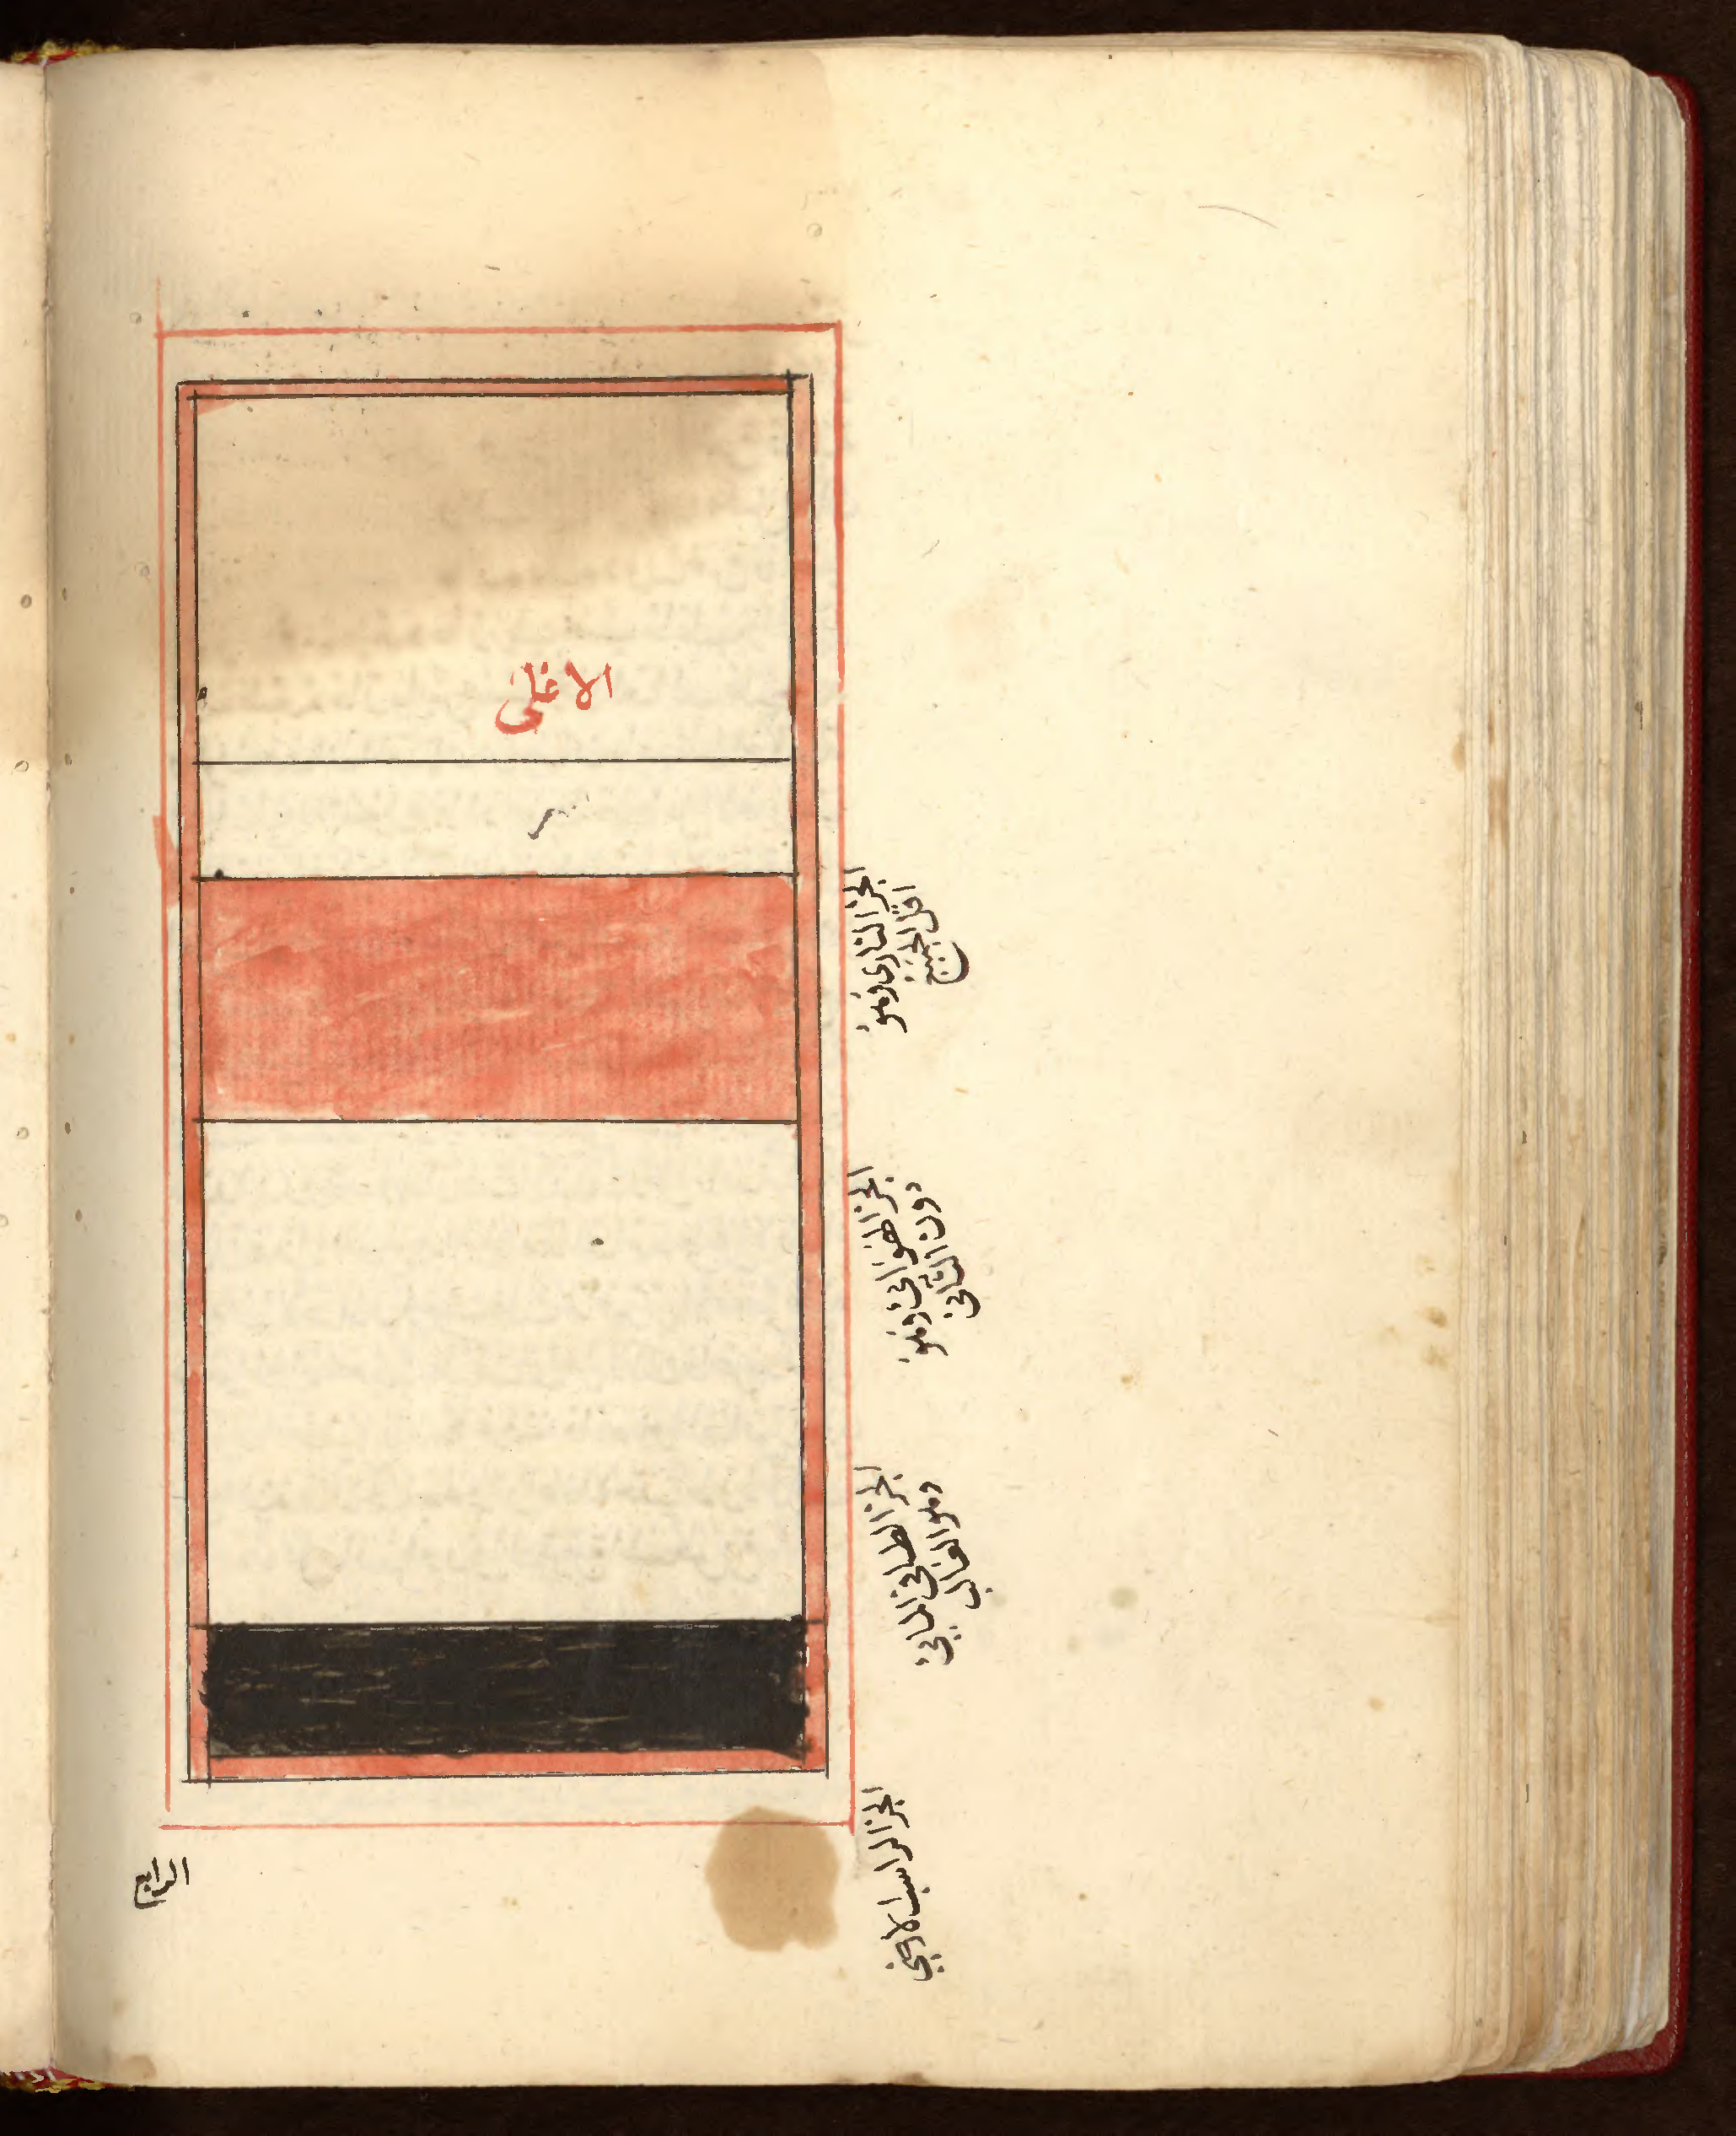 الاعلى
الجز الناري وهو
اقل الجميع
الجز الهوائي وهو
دون الثاني
الجز الطافي المايي
وهو الغالب
الجز الراسب الارضي
الرابع